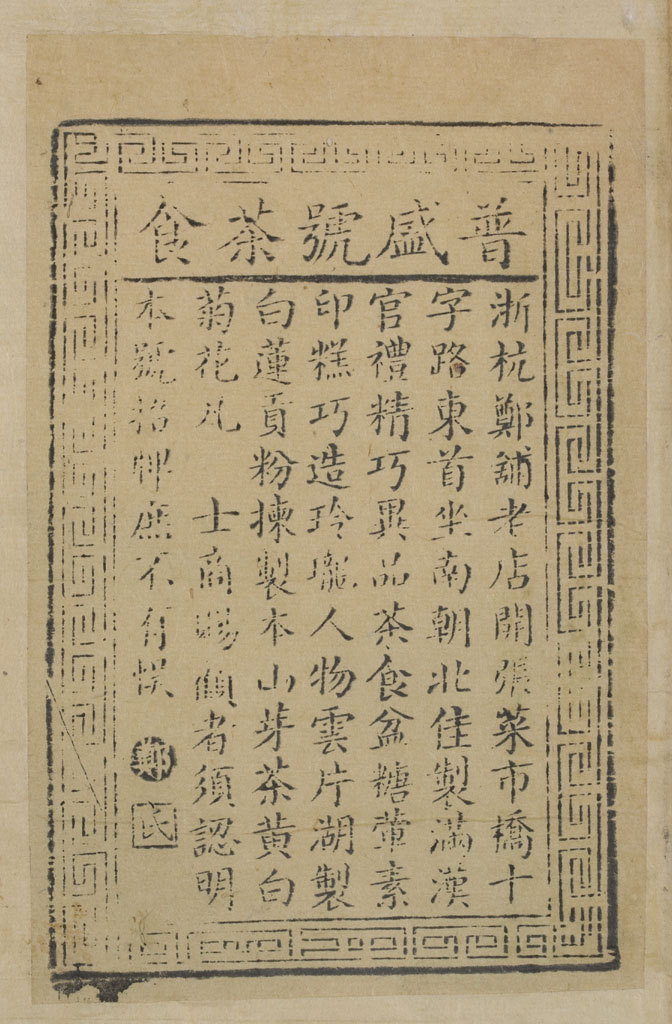 普盛號茶食
浙杭鄭舖老店開張菜市橋十
字路東首坐南朝北佳製滿漢
官禮精巧異品茶食盆糖葷素
印糕巧造玲瓏人物雲片湖製
白蓮貢粉揀製本山芽茶黃白
菊花凡 士商賜顧者須認明
本號招牌庶不有悞
鄭
氏